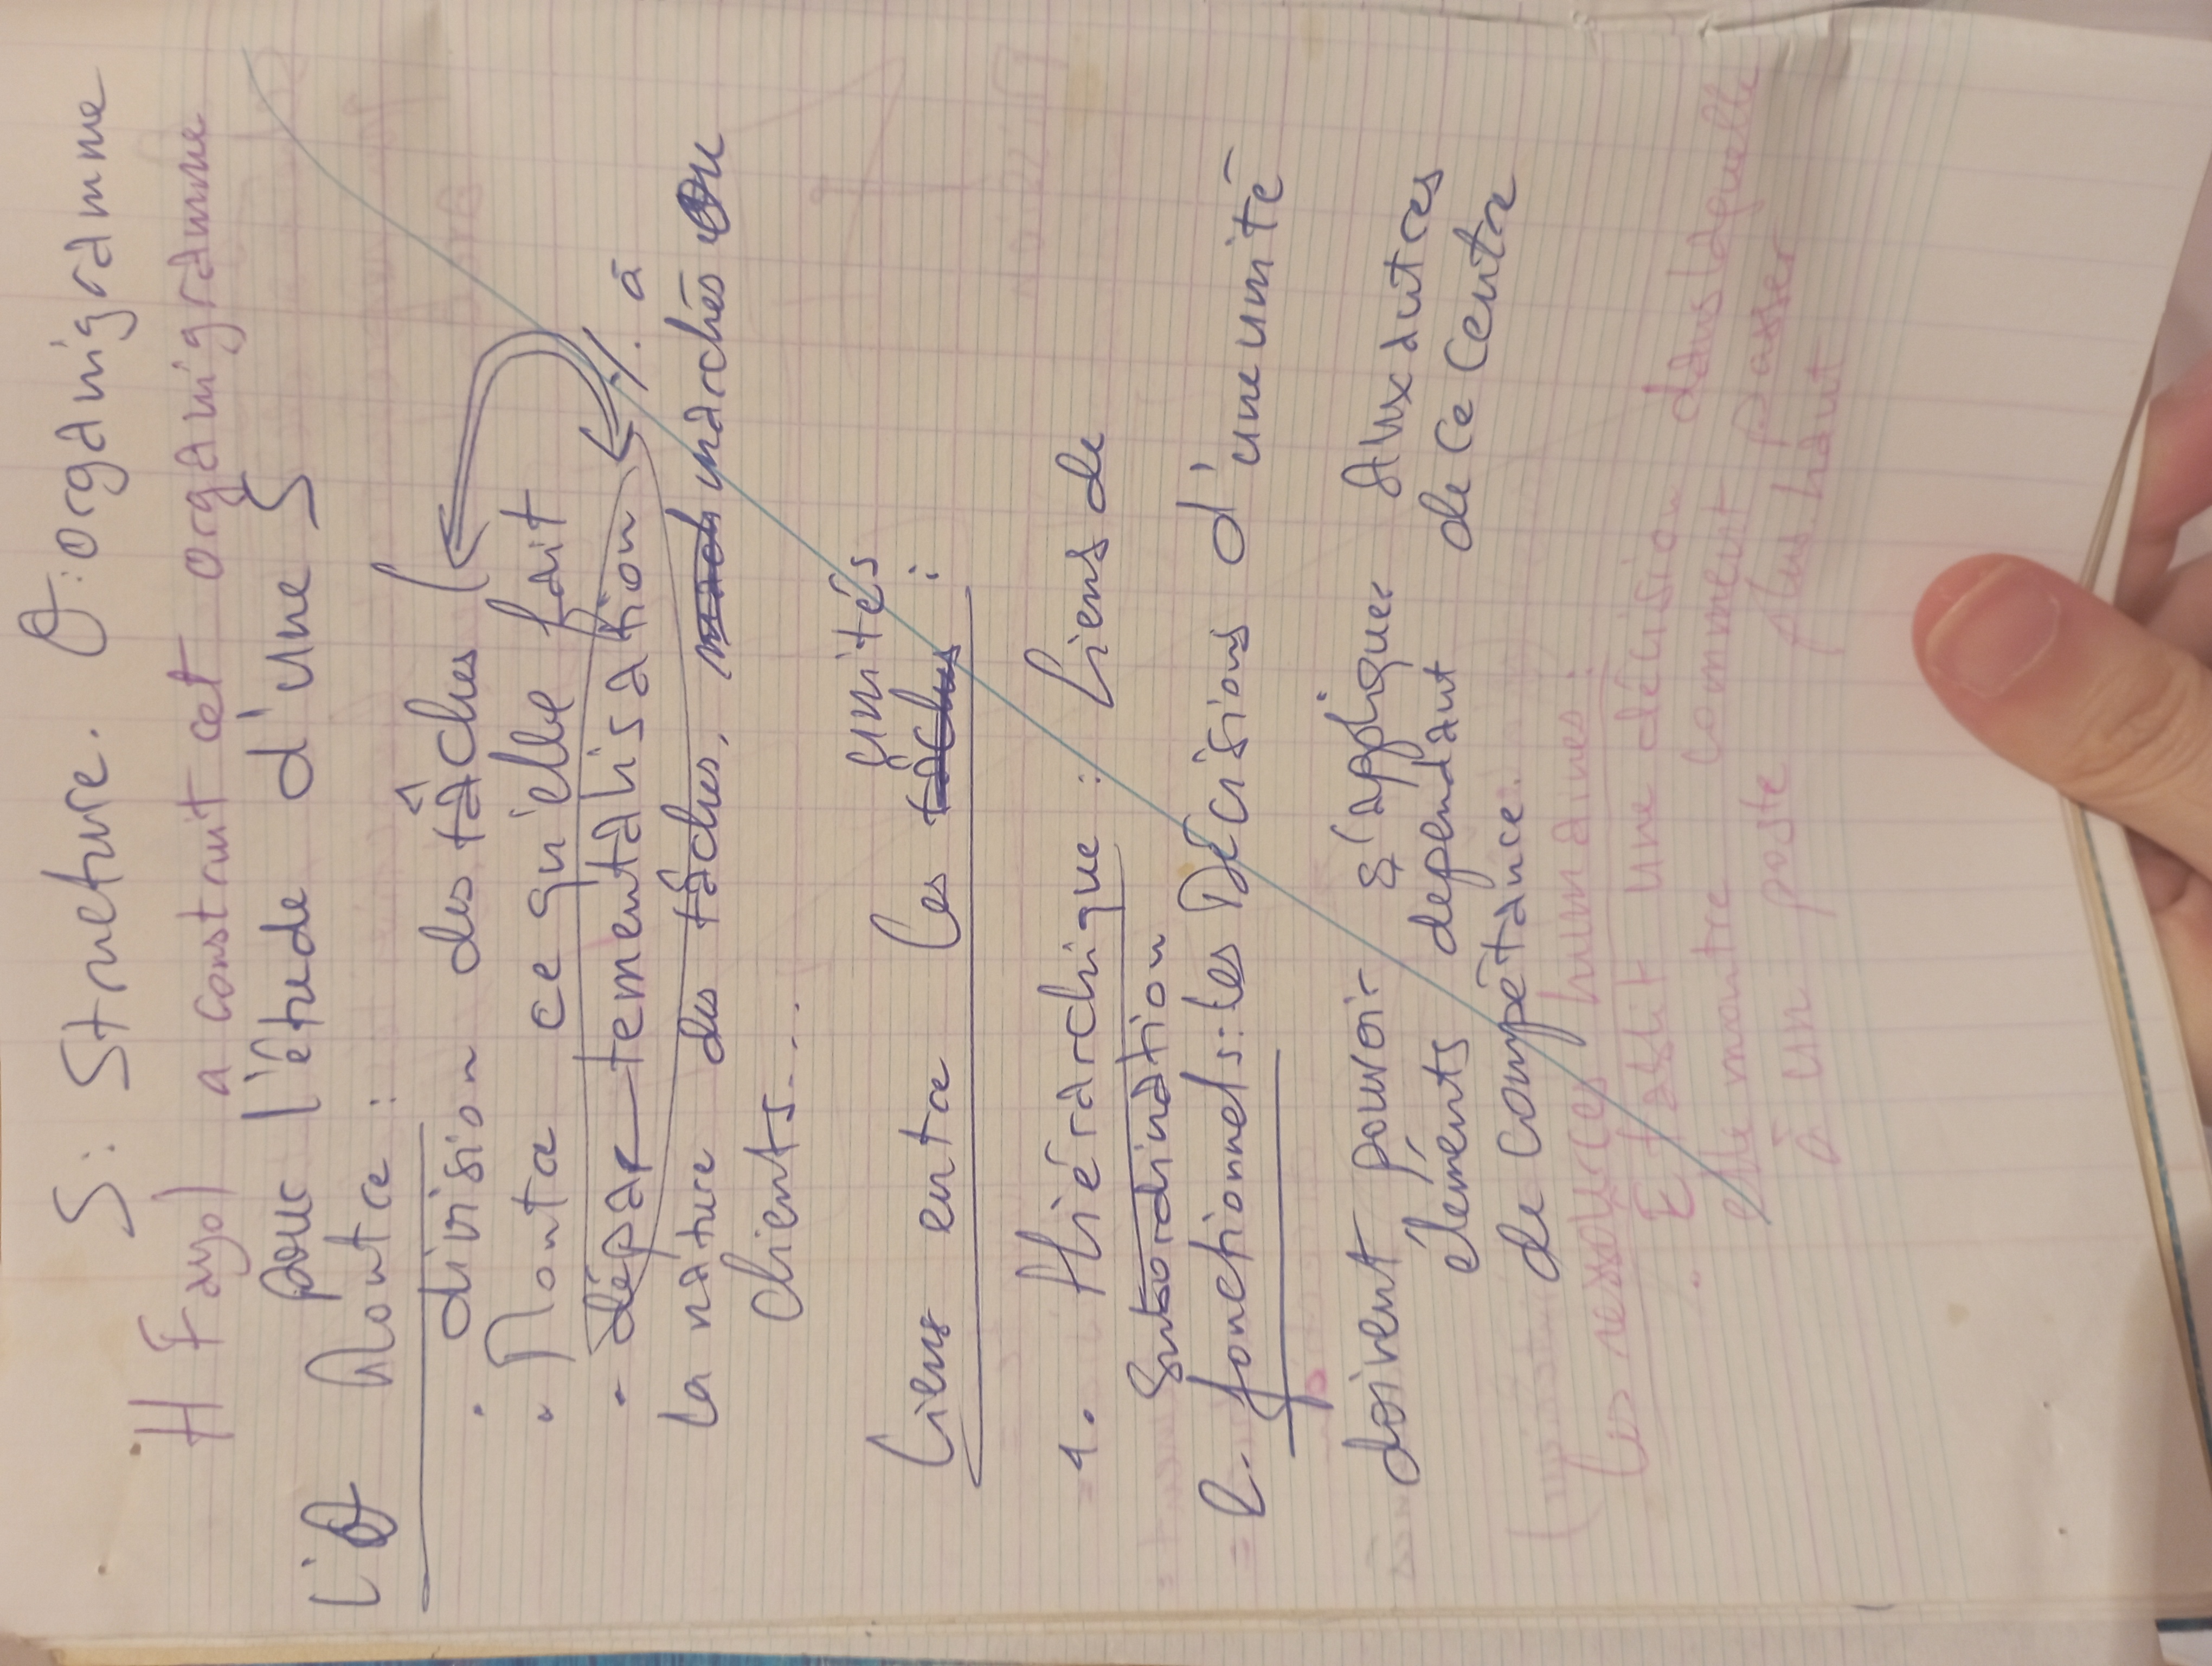 S: Structure. O: organigramme
H Fayol a construit cet organigramme
pour l'étude d'une S
L'O Montre :
. division des tâches
. Montre ce qu'elle fait
- départementalisation ./. à
la nature des tâches, marchés ou
clients...
unités
Liens entre les tâches :
1. Hiérarchique : liens de
subordination
2. fonctionnels: les Décisions d'une unité
doivent pouvoir s'appliquer aux autres
éléments dépendant de ce centre
de compétance.
Les ressources humaines :
. Etablit une décision dans laquelle
elle montre comment passer
à un poste plus haut